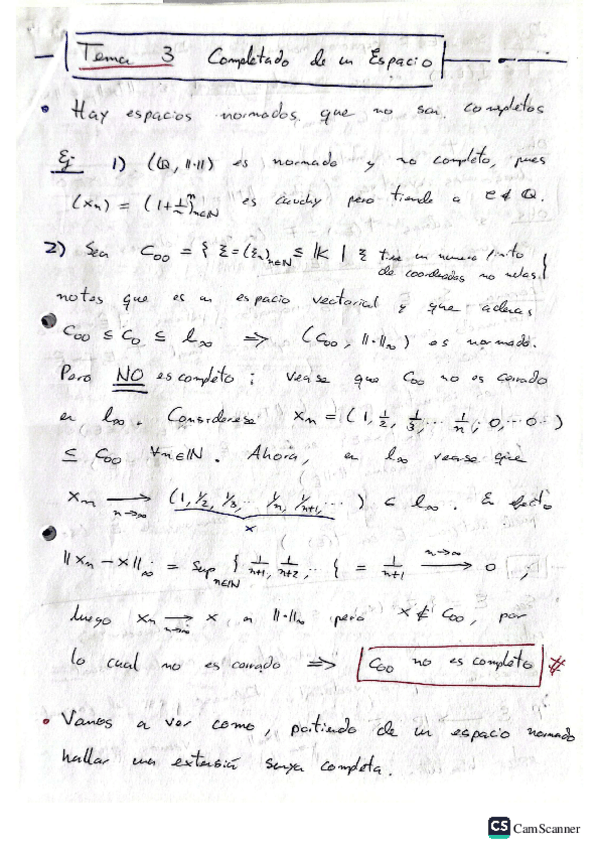 Tema 3 Completado de un Espacio
• Hay espacios normados que no son completos
Ej 1) (Q, ||·||) es normado y no completo, pues
(xn) = (1+1/n)^n n∈N es cauchy pero tiende a e∉Q.
2) Sea C00 = { ξ=(ξn)n∈N ⊆ IK | ξ tiene un numero finito
de coordenadas no nulas.}
notes que es un espacio vectorial y que ademas
C00 ⊆ C0 ⊆ l∞ => (C00, ||·||∞) es normado.
Pero NO es completo; vease que C00 no es cerrado
en l∞. Considerese xn = (1, 1/2, 1/3, ... 1/n, 0, ... 0 ··)
⊆ C00 ∀n∈IN. Ahora, en l∞ vease que
xn → n→∞ (1, 1/2, 1/3, ... 1/n, 1/n+1, ...) ⊂ l∞. En efecto
x
||xn - x||∞ = sup n∈IN { 1/n+1, 1/n+2, ... } = 1/n+1 → n→∞ 0 ;
luego xn → n→∞ x en ||·||∞ pero x ∉ C00, por
lo cual no es cerrado => C00 no es completo #
• Vamos a ver como, partiendo de un espacio normado
hallar una extensió suya completa.
CS CamScanner